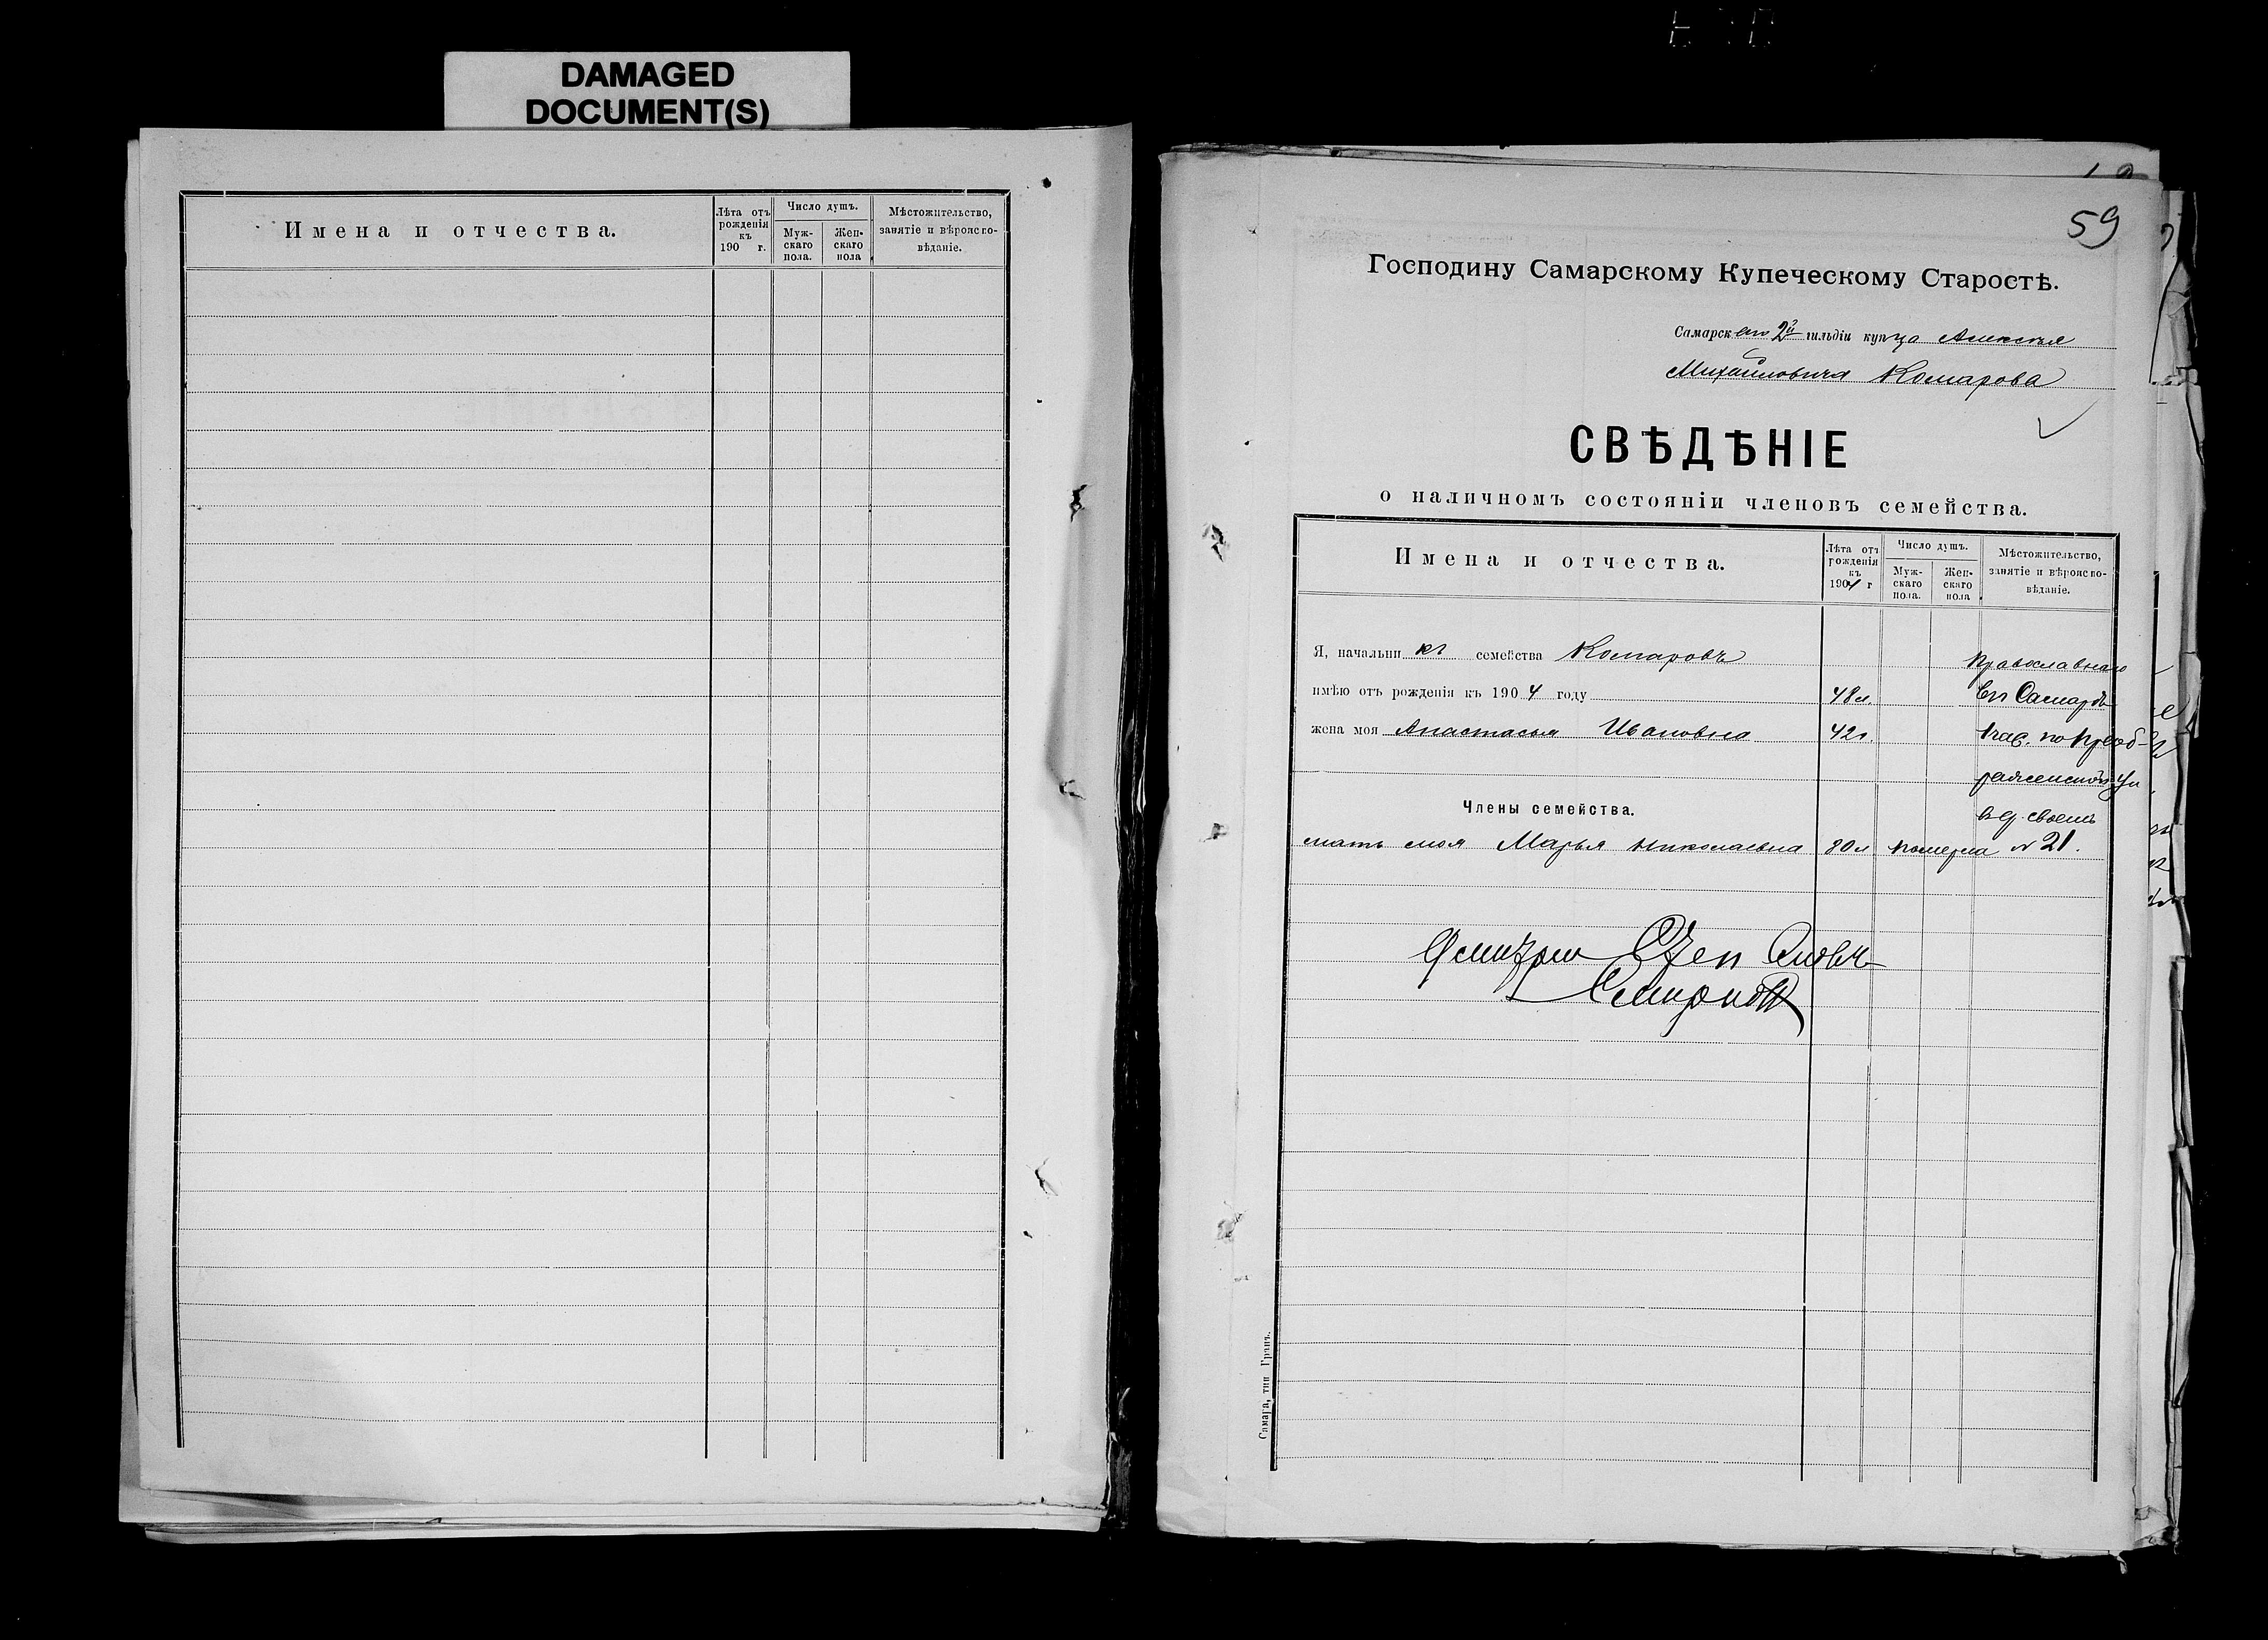 DAMAGED
DOCUMENT(S)
Имена и отчества.
Лѣта отъ рожденія къ 190 г.
Число душъ.
Мужскаго пола.
Женскаго пола
Мѣстожительство, занятіе и вѣроисповѣданіе.
59
Господину Самарскому Купеческому Старостѣ.
Самарскаго 2й гильдіи купца Алексѣя
Михайловича Комарова
СВѢДѢНІЕ
о наличномъ состояніи членовъ семейства.
Имена и отчества.
Лѣта отъ рожденія къ 1904 г
Число душъ.
Мужскаго пола.
Женскаго пола
Мѣстожительство, занятіе и вѣроисповѣданіе.
Я, начальникъ семейства Комаровъ
православнаго
имѣю отъ рожденія къ 1904 году 48 л.
въ Самарѣ
жена моя Анастасья Ивановна 42 г.
1 час. по Преоб-
раженской ул
Члены семейства.
в д. своемъ
мать моя Марья Николаевна 80 л померла № 21.
Дмитрий Степановъ
Смирновъ
Самара, тип Гранъ.